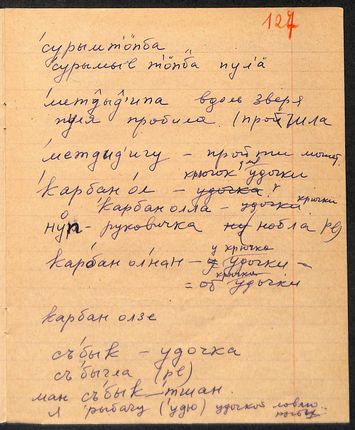 127
сурымтӧпба
сурымыв тӧпба пула
метдыд'ипа вдоль зверя
пуля пробила. (прой
метдид'игу – пройти может.
крючок для удочки
карбан ол – удочка
карбан олла – удочки крючки
нӯр – рукавичка нобла (pe)
у крючка
карбан олнан – удочки –
крючка
= об удочки
карбан олзе
съ́бык – удочка
съ́быгла (pe)
ман съ́бык тшан
я рыбачу (удю) удочкой ловлю